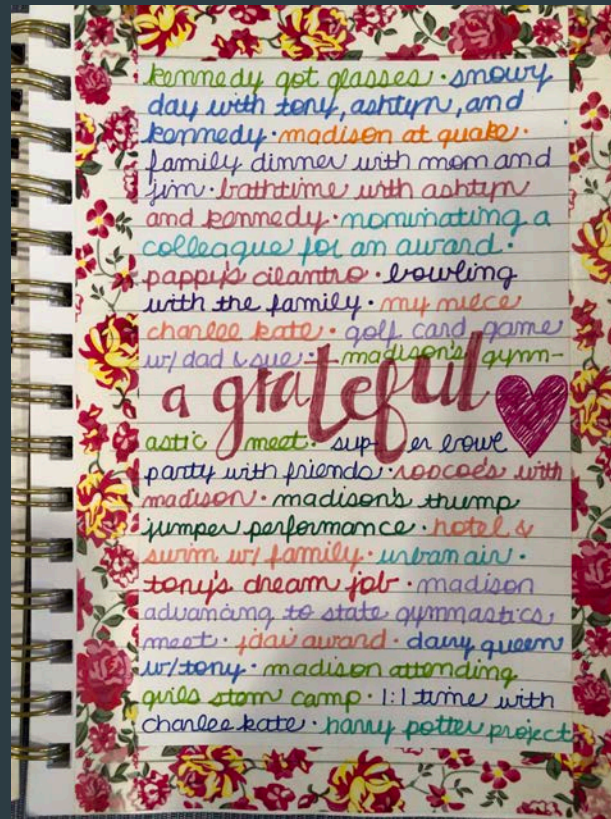 kennedy got glasses · snowy
day with tony, ashtyn, and
kennedy · madison at quake ·
family dinner with mom and
jim · bathtime with ashtyn
and kennedy · nominating a
colleague for an award ·
pappy's cilantro · bowling
with the family · my niece
charlee kate · golf card game
w/ dad & sue · madison's gymn-
a grateful
astic meet · super bowl
party with friends · roscoe's with
madison · madison's thump
jumper performance · hotel &
swim w/ family · urban air ·
tony's dream job · madison
advancing to state gymnastics
meet · jdai award · dairy queen
w/ tony · madison attending
girls stem camp · 1:1 time with
charlee kate · harry potter project